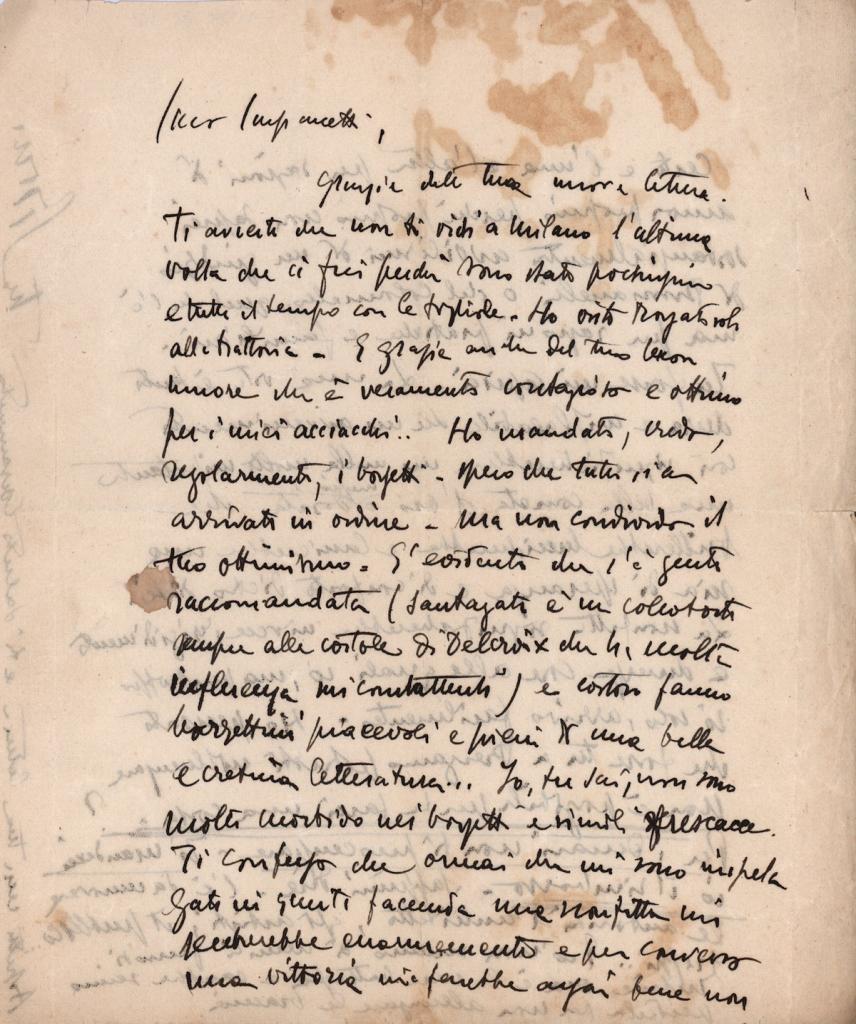 Caro
grazie della tua nuova lettera.
Ti avverto che non ti vidi a Milano l'ultima
volta che ci fui perchè sono stato pochissimo
e tutto il tempo con le figliole. Ho visto
alla trattoria. E grazie anche del tuo buon
umore che è veramente contagioso e ottimo
per i miei acciacchi.. Ho mandato, credo,
regolarmente, i bozzetti. Spero che tutti sian
arrivati in ordine. Ma non condivido il
tuo ottimismo. E' evidente che c'è gente
raccomandata (Santagata è un
sempre alle costole di Delcroix che ha molta
influenza nei combattenti) e costoro fanno
bozzettini piacevoli e pieni di una bella
e cretina letteratura... Io, tu sai, non sono
molto morbido nei bozzetti e simili frescacce.
Ti confesso che ormai che mi sono impela
gato in questa faccenda una sconfitta mi
seccherebbe enormemente e per converso
una vittoria mi farebbe assai bene non